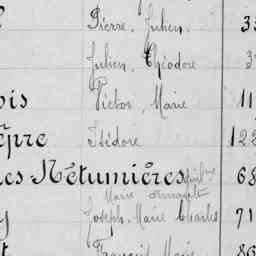 Pierre, Julien. 33
Julien, Théodore 3
ois Victor, Marie 11
èpre Isidore 122
es Nétumières 68
Marie
y Joseph, Marie Charles 71
t François Marie 86